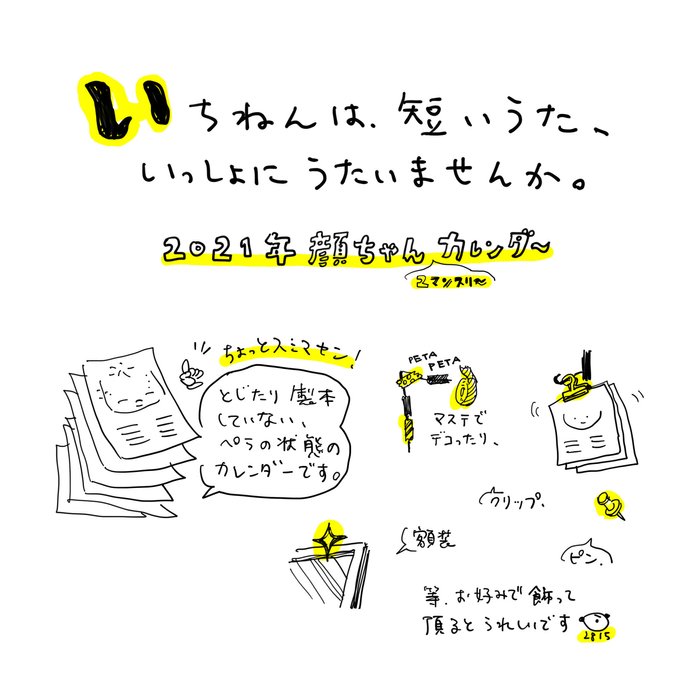 いちねんは、短いうた、
いっしょにうたいませんか。
2021年 顔ちゃんカレンダ〜
2マンスリ〜
ちょっとスミマセン!
とじたり製本
していない、
ペラの状態の
カレンダーです。
PETA
PETA
マステで
デコったり、
クリップ、
額装
ピン、
等、お好みで飾って
頂るとうれいです
2815